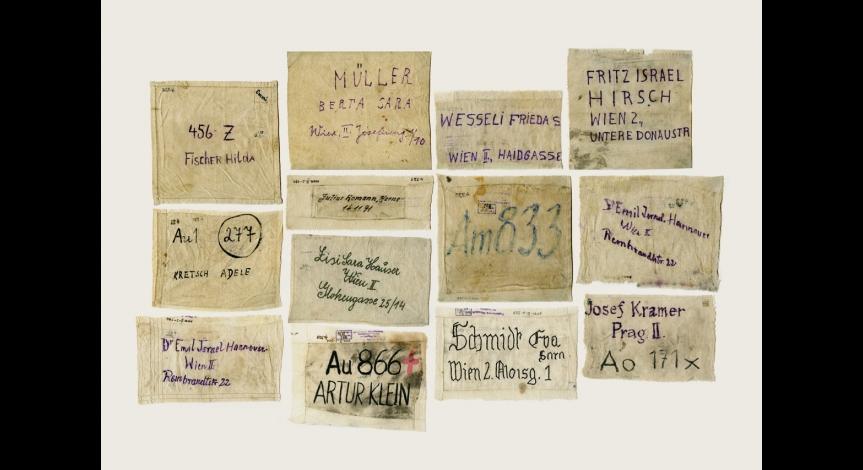 456 Z
Fischer Hilda
MÜLLER
BERTA SARA
Wien, II
10
WESSELI FRIEDA S
WIEN II, HAIDGASSE
FRITZ ISRAEL
HIRSCH
WIEN 2,
UNTERE DONAUSTR
Au1 277
KRETSCH ADELE
Julius
Lisi Sara Hauser
Wien II
Flohengasse 25/14
Am 833
Dr Emil Israel Hannover
Wien II
Rembrandtstr. 22
Dr Emil Israel Hannover
Wien II
Rembrandtstr 22
Au 866
ARTUR KLEIN
Schmidt Eva
Sara
Wien 2. Aloisg. 1
Josef Kramer
Prag II.
Ao 171 x